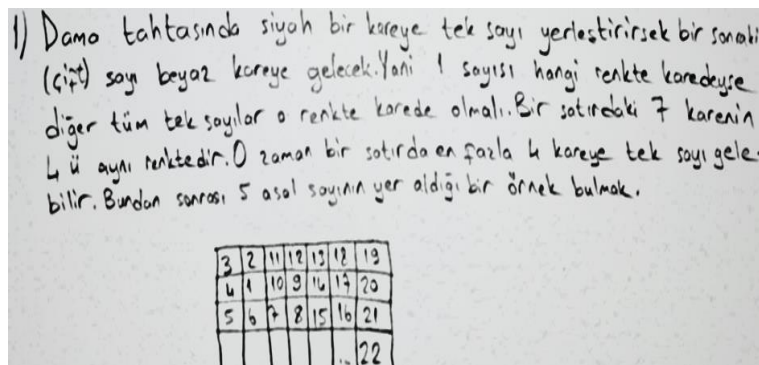 1) Dama tahtasında siyah bir kareye tek sayı yerleştirirsek bir sonraki
(çift) sayı beyaz kareye gelecek. Yani 1 sayısı hangi renkte karedeyse
diğer tüm tek sayılar o renkte karede olmalı. Bir satırdaki 7 karenin
4 ü aynı renktedir. O zaman bir satırda en fazla 4 kareye tek sayı gele-
bilir. Bundan sonrası 5 asal sayının yer aldığı bir örnek bulmak.
3 2 11 12 13 18 19
4 1 10 9 14 17 20
5 6 7 8 15 16 21
... 22